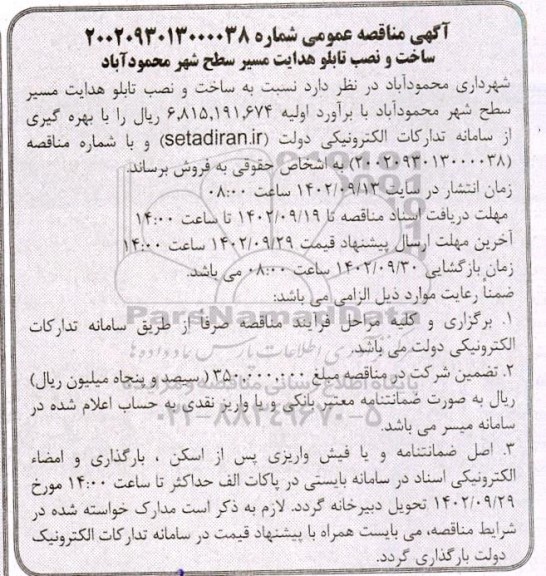 آگهی مناقصه عمومی شماره ۲۰۰۲۰۹۳۰۱۳۰۰۰۰۳۸
ساخت و نصب تابلو هدایت مسیر سطح شهر محمودآباد
شهرداری محمودآباد در نظر دارد نسبت به ساخت و نصب تابلو هدایت مسیر
سطح شهر محمودآباد با برآورد اولیه ۶,۸۱۵,۱۹۱,۶۷۴ ریال را با بهره گیری
از سامانه تدارکات الکترونیکی دولت (setadiran.ir) و با شماره مناقصه
(۲۰۰۲۰۹۳۰۱۳۰۰۰۰۳۸) به اشخاص حقوقی به فروش برساند.
زمان انتشار در سایت ۱۴۰۲/۰۹/۱۳ ساعت ۰۸:۰۰
مهلت دریافت اسناد مناقصه تا ۱۴۰۲/۰۹/۱۹ تا ساعت ۱۴:۰۰
آخرین مهلت ارسال پیشنهاد قیمت ۱۴۰۲/۰۹/۲۹ ساعت ۱۴:۰۰
زمان بازگشایی ۱۴۰۲/۰۹/۳۰ ساعت ۰۸:۰۰ می باشد.
ضمناً رعایت موارد ذیل الزامی می باشد:
۱. برگزاری و کلیه مراحل فرایند مناقصه صرفا از طریق سامانه تدارکات
الکترونیکی دولت می باشد.
ParsNamadData
۲. تضمین شرکت در مناقصه مبلغ ۳۵۰,۰۰۰,۰۰۰ ( سیصد و پنجاه میلیون ریال)
پایگاه اطلاع رسانی مناقصه و مزایده
ریال به صورت ضمانتنامه معتبر بانکی و یا واریز نقدی به حساب اعلام شده در
۰۲۱-۸۸۳۴۹۶۷۰-۵
سامانه میسر می باشد.
۳. اصل ضمانتنامه و یا فیش واریزی پس از اسکن ، بارگذاری و امضاء
الکترونیکی اسناد در سامانه بایستی در پاکات الف حداکثر تا ساعت ۱۴:۰۰ مورخ
۱۴۰۲/۰۹/۲۹ تحویل دبیرخانه گردد. لازم به ذکر است مدارک خواسته شده در
شرایط مناقصه، می بایست همراه با پیشنهاد قیمت در سامانه تدارکات الکترونیک
دولت بارگذاری گردد.